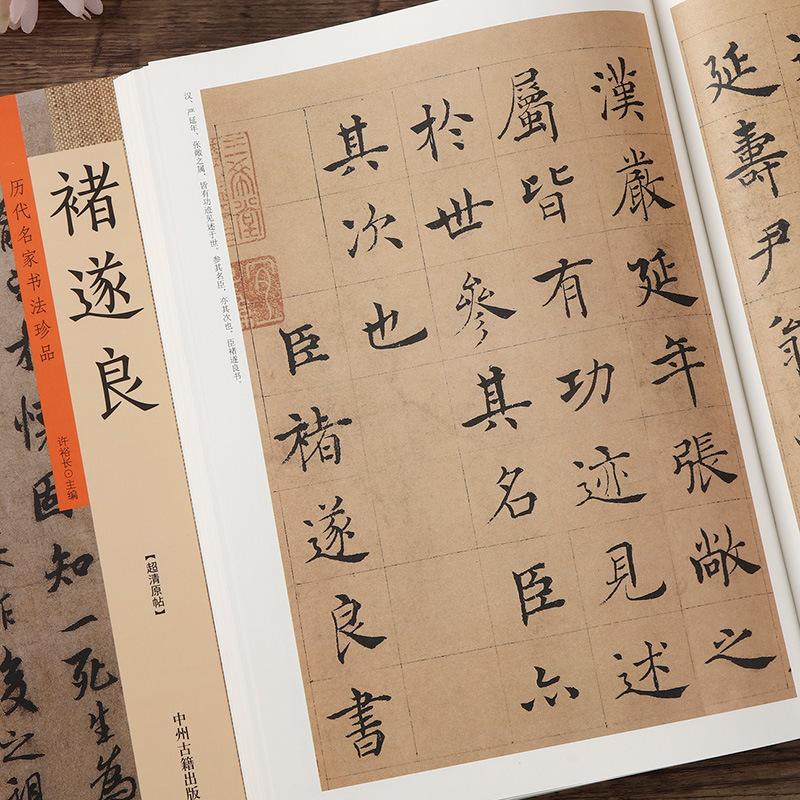 延壽尹翁
漢嚴延年張敞之
屬皆有功迹見述
於世參其名臣亦
其次也
臣褚遂良書
三希堂
汉、严延年、张敞之属，皆有功迹见述于世，参其名臣，亦其次也。臣褚遂良书。
褚遂良
历代名家书法珍品
许裕长⊙主编
【超清原帖】
中州古籍出版
固知一死生為